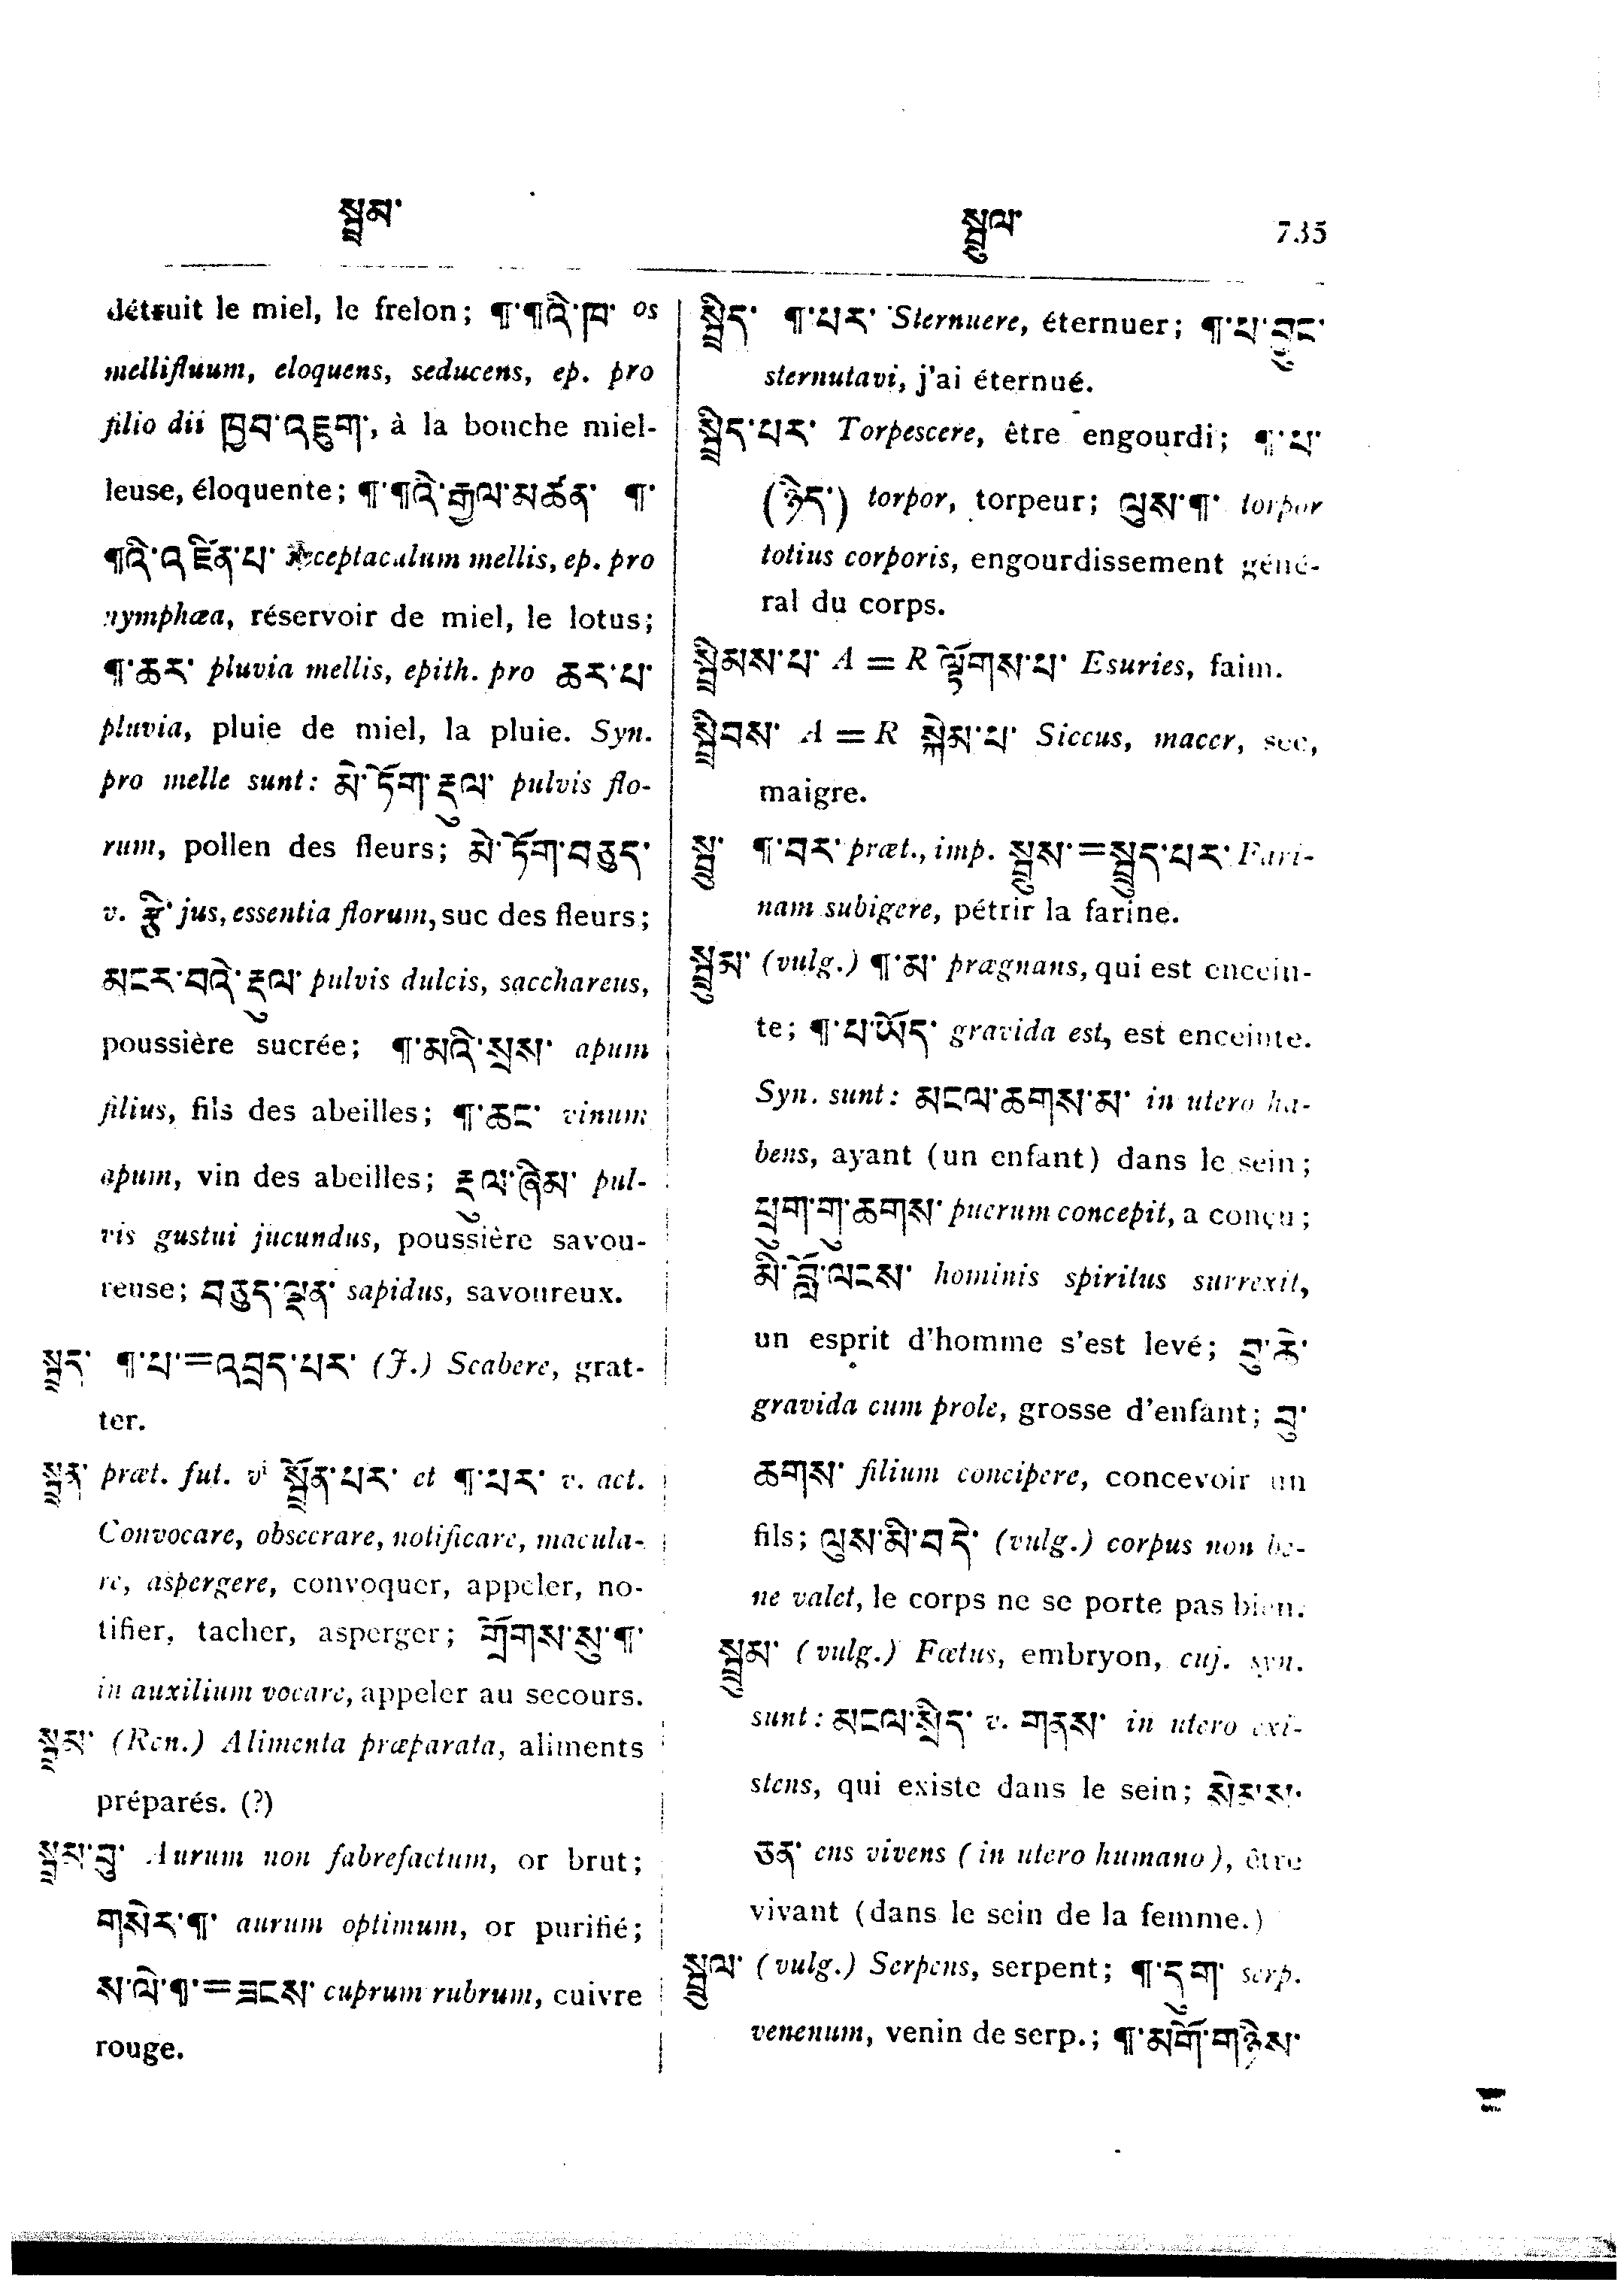 སྦྲམ་ སྦྲུལ་ 735
détruit le miel, le frelon; ¶་¶འི་ཁ་ os
mellifluum, eloquens, seducens, ep. pro
filio dii ཁྱབ་འཇུག་, à la bouche miel-
leuse, éloquente; ¶་¶འི་རྒྱལ་མཚན་ ¶་
¶འི་འཛིན་པ་ receptaculum mellis, ep. pro
nymphæa, réservoir de miel, le lotus;
¶་ཆར་ pluvia mellis, epith. pro ཆར་པ་
pluvia, pluie de miel, la pluie. Syn.
pro melle sunt: མེ་ཏོག་རྡུལ་ pulvis flo-
rum, pollen des fleurs; མེ་ཏོག་བཅུད་
v. རྩི་ jus, essentia florum, suc des fleurs;
མངར་བའི་རྡུལ་ pulvis dulcis, sacchareus,
poussière sucrée; ¶་མའི་སྲས་ apum
filius, fils des abeilles; ¶་ཆང་ vinum
apum, vin des abeilles; རྡུལ་ཞིམ་ pul-
vis gustui jucundus, poussière savou-
reuse; བཅུད་ལྡན་ sapidus, savoureux.
སྦྲད་ ¶་པ་=འབྲད་པར་ (J.) Scabere, grat-
ter.
སྦྲན་ præt. fut. vi སྦྲོན་པར་ et ¶་པར་ v. act.
Convocare, obsecrare, notificare, macula-
re, aspergere, convoquer, appeler, no-
tifier, tacher, asperger; གྲོགས་སུ་¶་
in auxilium vocare, appeler au secours.
སྦྲམ་ (Ren.) Alimenta præparata, aliments
préparés. (?)
སྦྲམ་བུ་ Aurum non fabrefactum, or brut;
གསེར་¶་ aurum optimum, or purifié;
ས་ལེ་¶་=ཟངས་ cuprum rubrum, cuivre
rouge.
སྦྲིད་ ¶་པར་ Sternuere, éternuer; ¶་པ་བྱུང་
sternutavi, j'ai éternué.
སྦྲིད་པར་ Torpescere, être engourdi; ¶་པ་
(ཉིད་) torpor, torpeur; ལུས་¶་ torpor
totius corporis, engourdissement géné-
ral du corps.
སྦྲིམས་པ་ A = R ལྟོགས་པ་ Esuries, faim.
སྦྲིབས་ A = R སྐེམ་པ་ Siccus, macer, sec,
maigre.
སྦྲུ་ ¶་བར་ præt., imp. སྦྲུས་=སྦྲུད་པར་ Fari-
nam subigere, pétrir la farine.
སྦྲུམ་ (vulg.) ¶་མ་ prægnans, qui est encein-
te; ¶་པ་ཡོད་ gravida est, est enceinte.
Syn. sunt: མངལ་ཆགས་མ་ in utero ha-
bens, ayant (un enfant) dans le sein;
ཕྲུག་གུ་ཆགས་ puerum concepit, a conçu;
མི་བློ་ལངས་ hominis spiritus surrexit,
un esprit d'homme s'est levé; བུ་ཆེ་
gravida cum prole, grosse d'enfant; བུ་
ཆགས་ filium concipere, concevoir un
fils; ལུས་མི་བདེ་ (vulg.) corpus non be-
ne valet, le corps ne se porte pas bien.
སྦྲུམ་ (vulg.) Fœtus, embryon, cuj. syn.
sunt: མངལ་སྲིད་ v. གནས་ in utero exi-
stens, qui existe dans le sein; སེར་ས་
ཅན་ ens vivens (in utero humano), être
vivant (dans le sein de la femme.)
སྦྲུལ་ (vulg.) Serpens, serpent; ¶་དུག་ serp.
venenum, venin de serp.; ¶་མགོ་གཉིས་